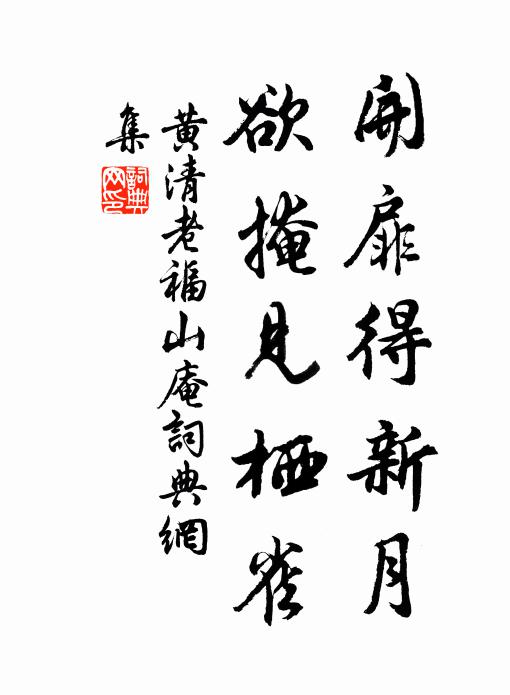 開扉得新月
欲掩見栖雀
黃清老福山庵詞典網
集
詞典
网印